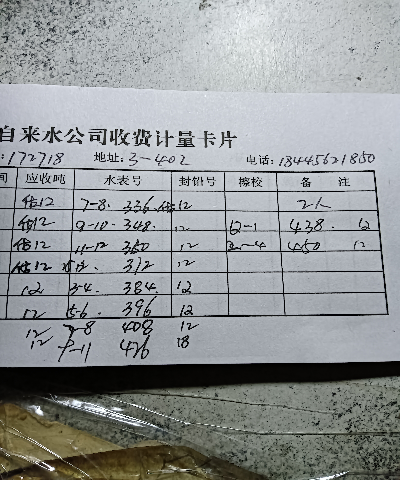 自来水公司收费计量卡片
:172718 地址:3-402 电话:13445621850
间 应收吨 水表号 封铅号 檫校 备 注
估12 7-8. 336. 估12 2人
估12 9-10. 348. 12 12-1 438. 12
估12 11-12 12 2-4 450 12
估12 12
12 3-4. 384. 12
12 5-6. 396 12
12 7-8 408 12
12 9-11 426 18